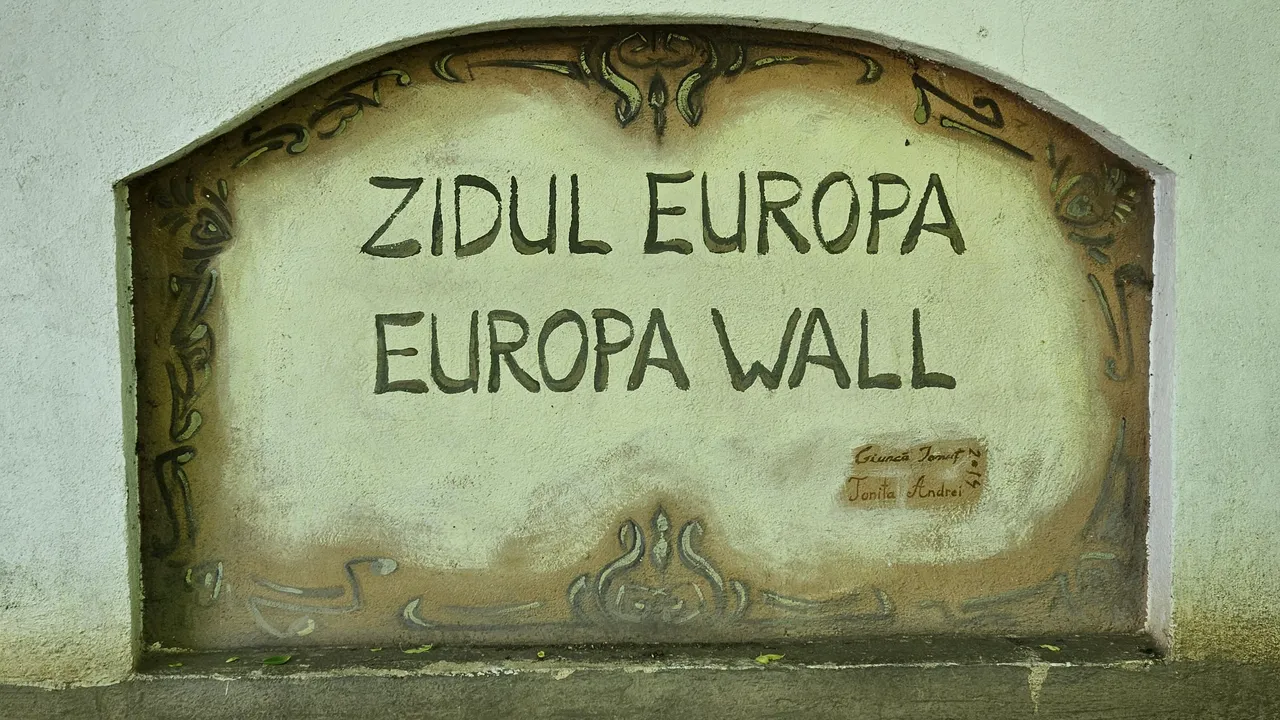 ZIDUL EUROPA
EUROPA WALL
Giuncă Ionuț
Ioniță Andrei
2014